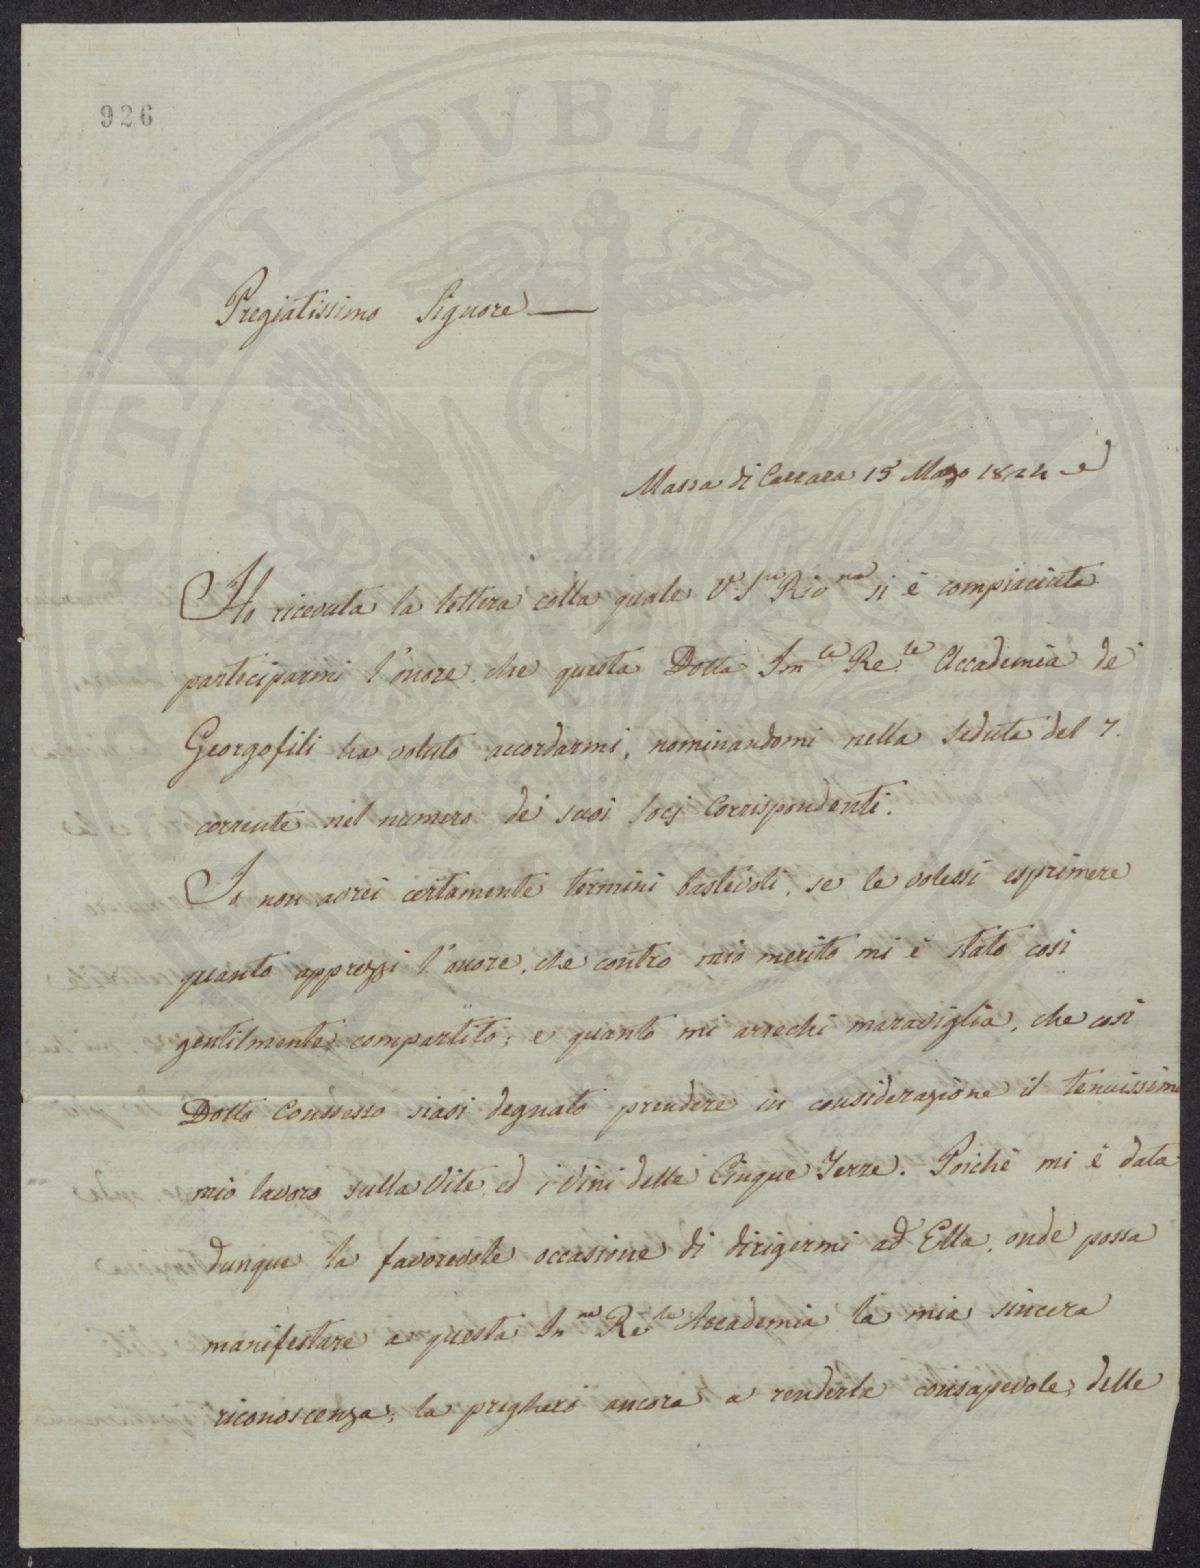 926
PROSPERITATI PVBLICAE AVGENDAE
Pregiatissimo Signore
Massa di Carrara 15 Mazo 1824
Ho ricevuta la lettera colla quale V. S. Rio ma si è compiaciuta
participarmi l'onore che questa Dotta Im le Re. le Accademia de'
Georgofili ha voluto accordarmi, nominandomi nella seduta del 7.
corrente nel numero de' suoi Socj Corrispondenti.
Io non avrei certamente termini bastevoli, se le volessi esprimere
quanto apprezzi l'onore, che contro mio merito mi è stato così
gentilmente compartito; e quanto mi arrechi maraviglia, che così
Dotto Consesso siasi degnato prendere in considerazione il tenuissimo
mio lavoro sulla Vite ed i Vini delle Cinque Terre. Poichè mi è data
dunque la favorevole occasione di dirigermi ad Ella, onde possa
manifestare a questa Im Re le Accademia la mia sincera
riconoscenza, la pregherò ancora a renderla consapevole delle